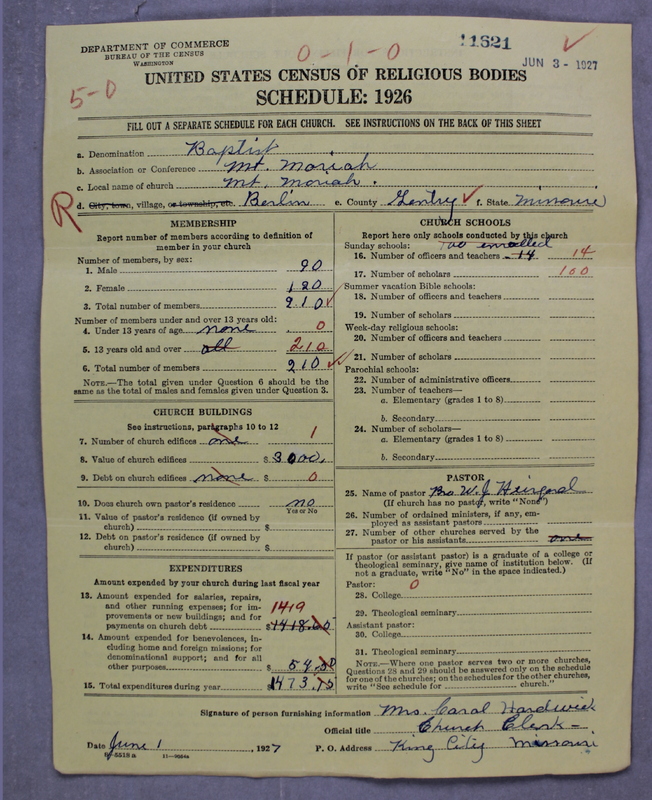 DEPARTMENT OF COMMERCE
BUREAU OF THE CENSUS
WASHINGTON
0-1-0
11621
JUN 3 - 1927
5-0
UNITED STATES CENSUS OF RELIGIOUS BODIES
SCHEDULE: 1926
FILL OUT A SEPARATE SCHEDULE FOR EACH CHURCH. SEE INSTRUCTIONS ON THE BACK OF THIS SHEET
a. Denomination Baptist
b. Association or Conference Mt. Moriah
c. Local name of church Mt. Moriah.
R
d. City, town, village, or township, etc. Berlin e. County Gentry f. State Missouri
MEMBERSHIP
Report number of members according to definition of
member in your church
Number of members, by sex:
1. Male 90
2. Female 120
3. Total number of members 210
Number of members under and over 13 years old:
4. Under 13 years of age none 0
5. 13 years old and over all 210
6. Total number of members 210
NOTE.—The total given under Question 6 should be
the same as the total of males and females given under Question 3.
CHURCH BUILDINGS
See instructions, paragraphs 10 to 12
7. Number of church edifices one 1
8. Value of church edifices $ 3000.
9. Debt on church edifices none $ 0
10. Does church own pastor's residence no
Yes or No
11. Value of pastor's residence (if owned by
church) $
12. Debt on pastor's residence (if owned by
church) $
EXPENDITURES
Amount expended by your church during last fiscal year
13. Amount expended for salaries, repairs,
and other running expenses; for im-
provements or new buildings; and for
payments on church debt 1419
14. Amount expended for benevolences, in-
cluding home and foreign missions; for
denominational support; and for all
other purposes $
15. Total expenditures during year $1473.75
CHURCH SCHOOLS
Report here only schools conducted by this church
Sunday schools: 100 enrolled
16. Number of officers and teachers 14 14
17. Number of scholars 100
Summer vacation Bible schools:
18. Number of officers and teachers
19. Number of scholars
Week-day religious schools:
20. Number of officers and teachers
21. Number of scholars
Parochial schools:
22. Number of administrative officers
23. Number of teachers—
a. Elementary (grades 1 to 8)
b. Secondary
24. Number of scholars—
a. Elementary (grades 1 to 8)
b. Secondary
PASTOR
25. Name of pastor Bro W. J.
(If church has no pastor, write "None")
26. Number of ordained ministers, if any, em-
ployed as assistant pastors
27. Number of other churches served by the
pastor or his assistants one
If pastor (or assistant pastor) is a graduate of a college or
theological seminary, give name of institution below. (If
not a graduate, write "No" in the space indicated.)
Pastor: 0
28. College
29. Theological seminary
Assistant pastor:
30. College
31. Theological seminary
NOTE.—Where one pastor serves two or more churches,
Questions 28 and 29 should be answered only on the schedule
for one of the churches; on the schedules for the other churches,
write "See schedule for church."
Signature of person furnishing information Mrs. Caral Hardwick
Official title Church Clerk
Date June 1, 1927 P. O. Address King City Missouri